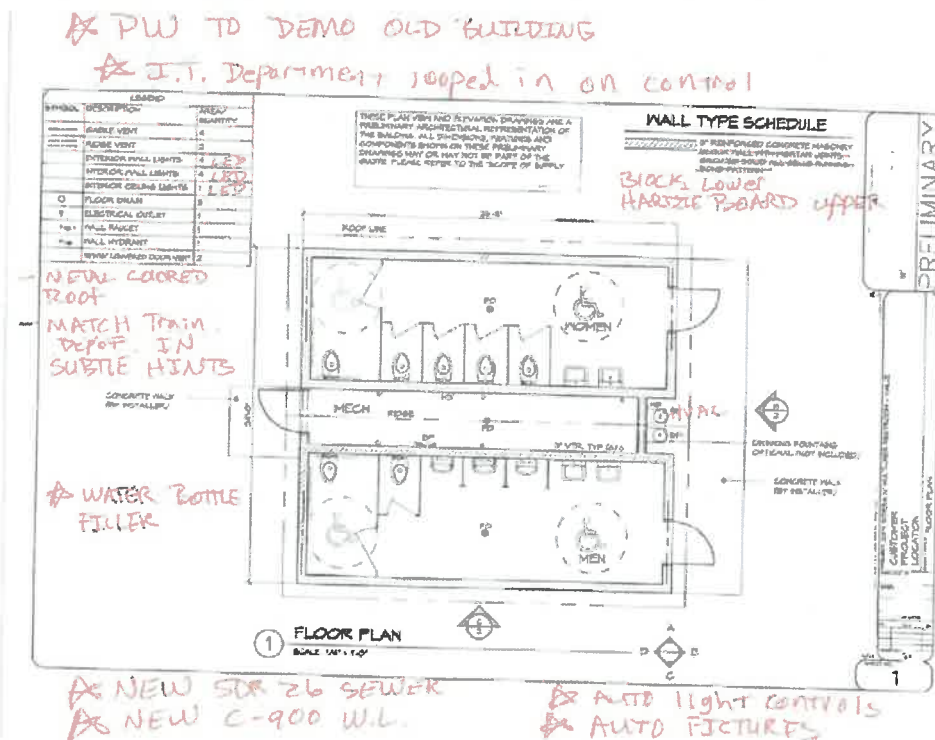 PW TO DEMO OLD BUILDING
I.T. Department looped in on control
LEGEND
SYMBOL DESCRIPTION AREA/QUANTITY
GABLE VENT 4
RIDGE VENT 2
EXTERIOR WALL LIGHTS 4 LED
INTERIOR WALL LIGHTS 4 LED
INTERIOR CEILING LIGHTS 1 LED
FLOOR DRAIN 3
ELECTRICAL OUTLET 1
WALL FAUCET 1
WALL HYDRANT 1
LOUVERED DOOR VENT 2
THESE PLAN VIEW AND ELEVATION DRAWINGS ARE A
PRELIMINARY ARCHITECTURAL REPRESENTATION OF
THE BUILDING. ALL DIMENSIONS, FEATURES AND
COMPONENTS SHOWN ON THESE PRELIMINARY
DRAWINGS MAY OR MAY NOT BE PART OF THE
QUOTE. PLEASE REFER TO THE "SCOPE OF SUPPLY"
WALL TYPE SCHEDULE
8" REINFORCED CONCRETE MASONRY
BLOCK Lower
HARDIE BOARD UPPER
PRELIMINARY
METAL COLORED
ROOF
MATCH Train
DEPOT IN
SUBTLE HINTS
ROOF LINE
FD
WOMEN
CONCRETE WALK
(BY INSTALLER)
MECH
RIDGE
FD
HVAC
DRINKING FOUNTAINS
OPTIONAL (NOT INCLUDED)
CONCRETE WALK
(BY INSTALLER)
WATER BOTTLE
FILLER
FD
MEN
CUSTOMER
PROJECT
LOCATION
FLOOR PLAN
1 FLOOR PLAN
A
B
C
D
1
NEW SDR 26 SEWER
NEW C-900 W.L.
AUTO light controls
AUTO FICTURES